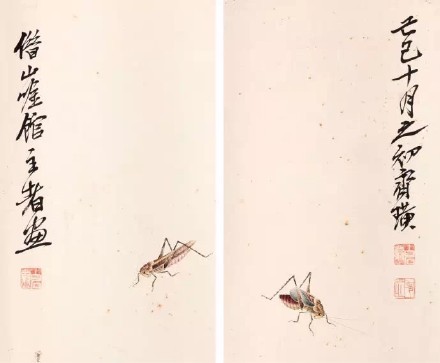 己巳十月之初齊璜
借山唫館主者畫